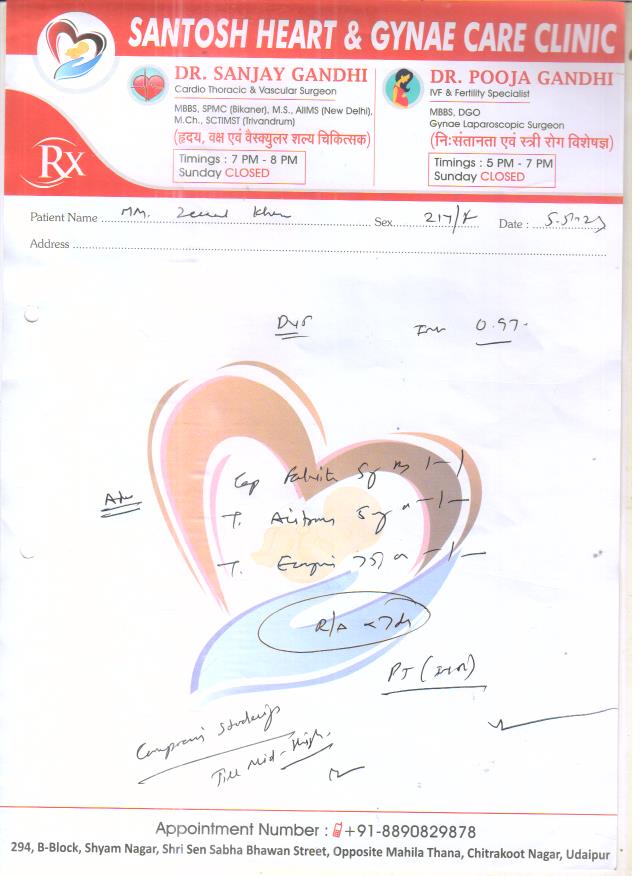 SANTOSH HEART & GYNAE CARE CLINIC
DR. SANJAY GANDHI
Cardio Thoracic & Vascular Surgeon
MBBS, SPMC (Bikaner), M.S., AIIMS (New Delhi),
M.Ch., SCTIMST (Trivandrum)
(हृदय, वक्ष एवं वैस्क्युलर शल्य चिकित्सक)
Timings : 7 PM - 8 PM
Sunday CLOSED
DR. POOJA GANDHI
IVF & Fertility Specialist
MBBS, DGO
Gynae Laparoscopic Surgeon
(नि:संतानता एवं स्त्री रोग विशेषज्ञ)
Timings : 5 PM - 7 PM
Sunday CLOSED
Rx
Patient Name : Khan Sex. Date :
Address
0.97
Adv
Cap 1-1
T. 5mg -1-
T. 75 -1-
R/A 7d
PT (INR)
Stockings
Till Mid-thigh.
Appointment Number : +91-8890829878
294, B-Block, Shyam Nagar, Shri Sen Sabha Bhawan Street, Opposite Mahila Thana, Chitrakoot Nagar, Udaipur